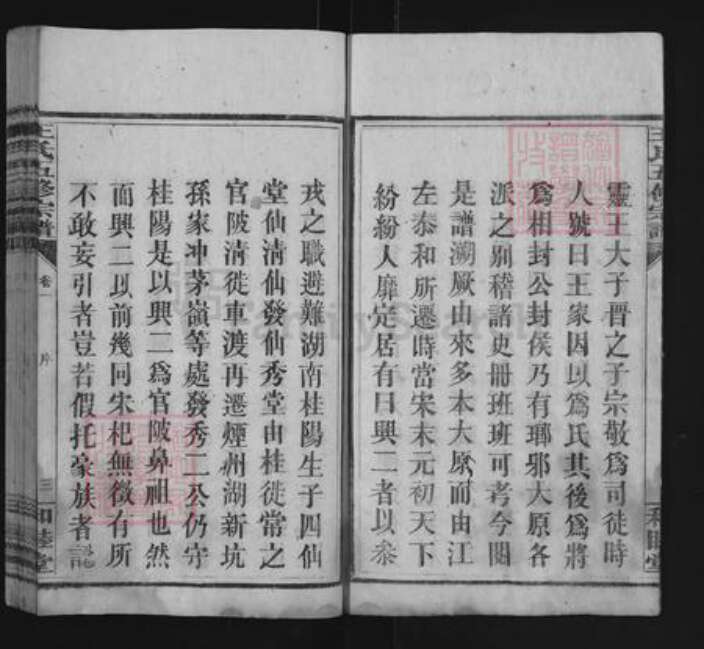 靈王大子晋之子宗敬為司徒時
人號曰王家因以為氏其後為將
為相封公封侯乃有瑯邪大原各
派之别稽諸史冊班班可考今閱
是譜溯厥由來多本大原而由江
左泰和所遷時當宋末元初天下
紛紛人靡定居有曰興二者以叅
戎之職避難湖南桂陽生子四仙
堂仙清仙發仙秀堂由桂徙常之
官陂清徙車渡再遷煙州湖新坑
孫家冲茅嶺等處發秀二公仍守
桂陽是以興二為官陂鼻祖也然
而興二以前幾同宋杞無徵有所
不敢妄引者豈若假托豪族者
王氏五修宗譜
卷一
序
三
和睦堂
FamilySearch